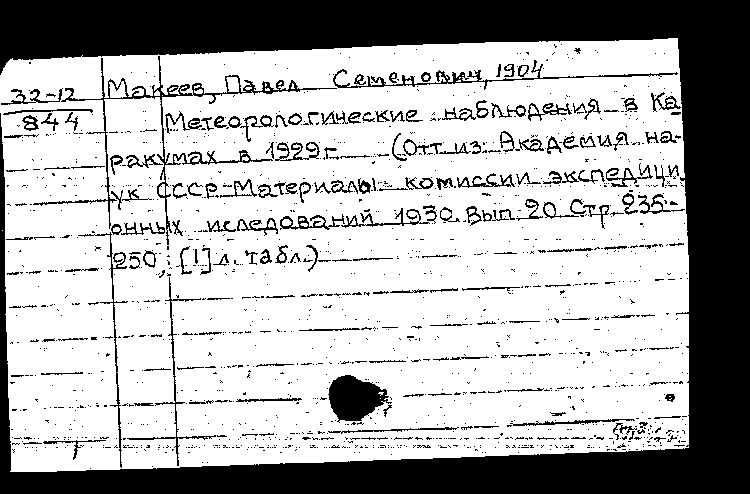 32-12
844
Макеев, Павел Семенович, 1904
Метеорологические наблюдения в Ка
ракумах в 1929г (Отт из: Академия на-
ук СССР-Материалы комиссии экспедици
онных иследований 1930. Вып. 20 Стр. 235-
250, [1] л. табл.)